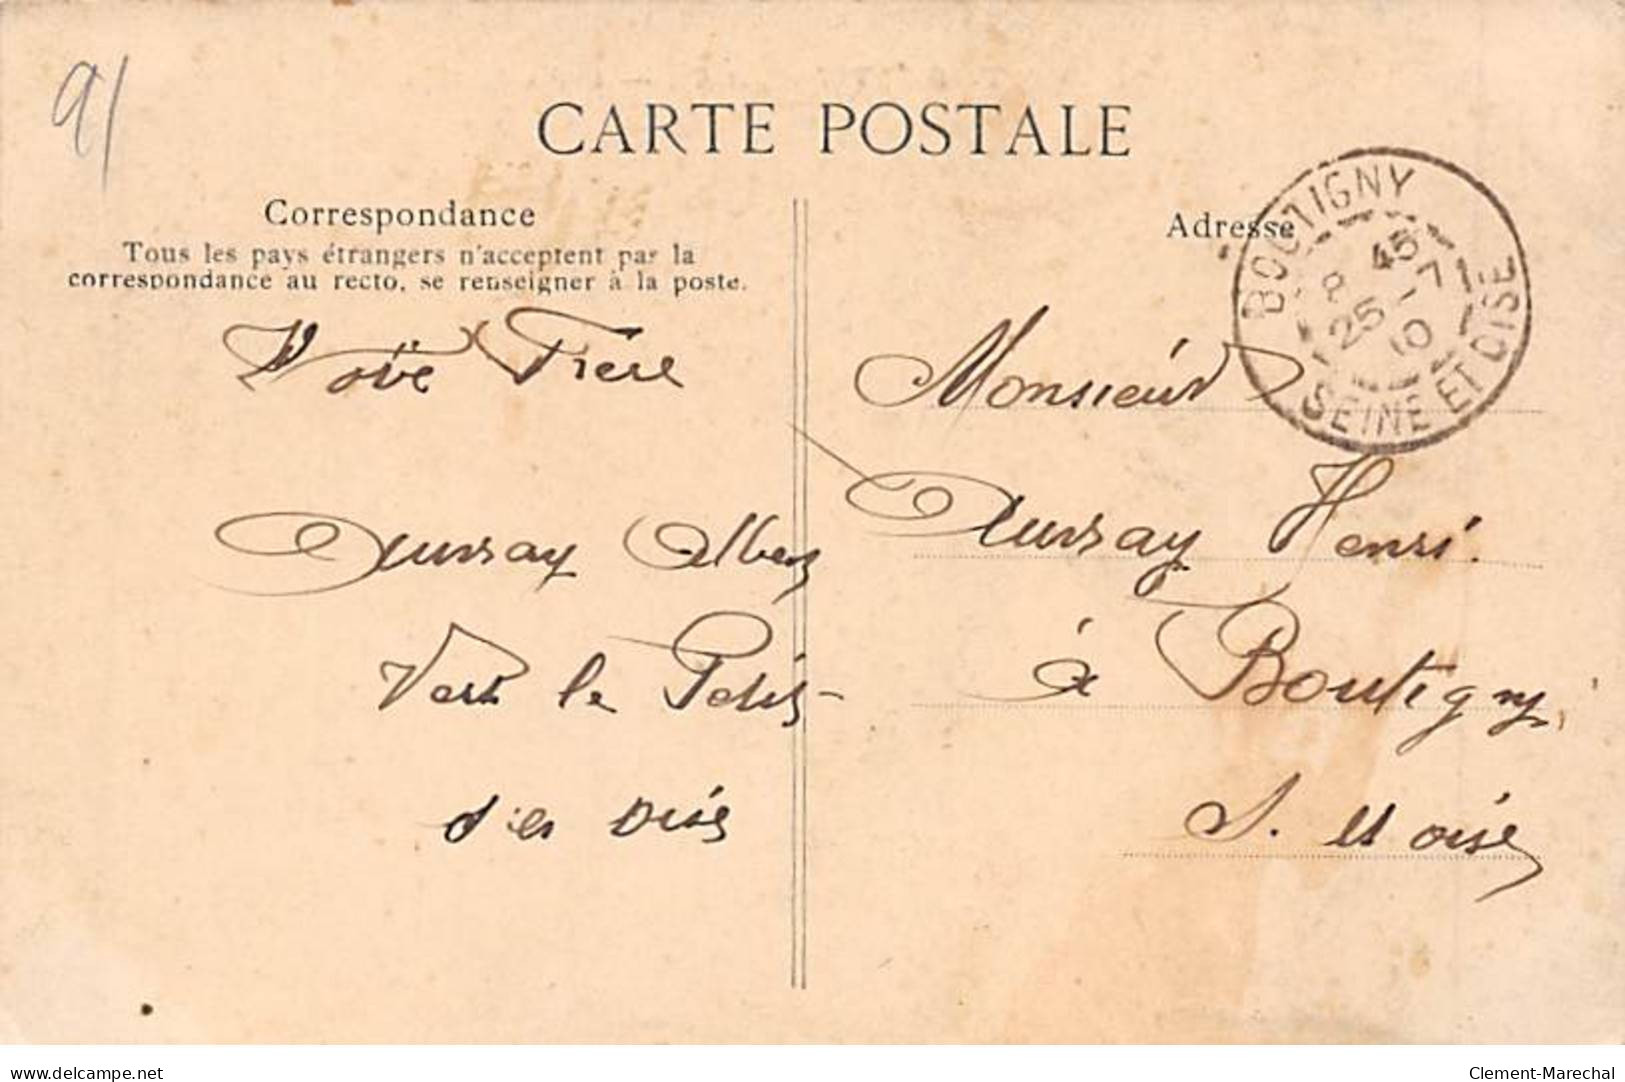 91
CARTE POSTALE
Correspondance
Tous les pays étrangers n'acceptent par la
correspondance au recto, se renseigner à la poste.
Frère
Aussay Albert
Vert le Petit
Adresse
BOUTIGNY
8 45
25 - 7
10
SEINE ET OISE
Monsieur
Aussay Henri
à Boutigny
S. et oise
www.delcampe.net
Clement-Marechal